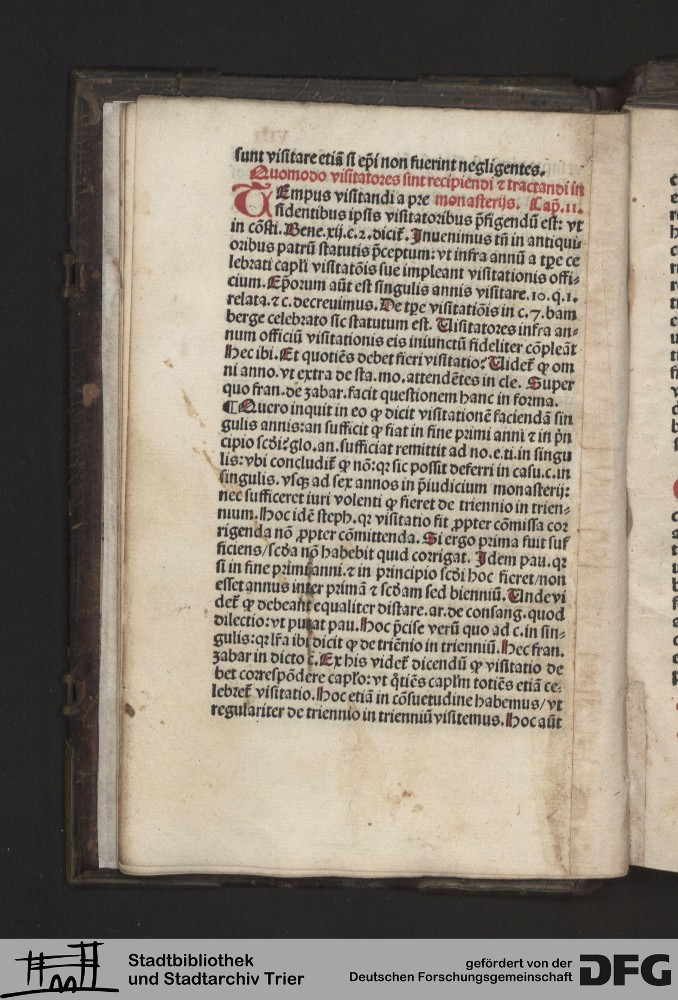 sunt visitare etiā si ep̄i non fuerint negligentes.
Quomodo visitatores sint recipiendi ⁊ tractandi in
monasterijs. Cap̄.11.
TEmpus visitandi a pre
sidentibus ipsis visitatoribus p̄figendū est: vt
in cōsti. Bene.xij.c.2.dicit᷑. Inuenimus tn̄ in antiqui-
oribus patrū statutis p̄ceptum: vt infra annū a tp̄e ce
lebrati capl̓i visitatōis sue impleant visitationis offi-
cium. Ep̄orum aūt est singulis annis visitare.10.q.1.
relata.⁊ c.decreuimus. De tp̄e visitatiōis in c.7.bam
berge celebrato sic statutum est. Visitatores infra an-
num officiū visitationis eis iniunctū fideliter cōpleāt
Hec ibi. Et quotiēs debet fieri visitatio? Videt᷑ ꝙ om
ni anno.vt extra de sta.mo.attendētes in cle. Super
quo fran.de zabar.facit questionem hanc in forma.
¶Quero inquit in eo ꝙ dicit visitationē faciendā sin
gulis annis:an sufficit ꝙ fiat in fine primi anni ⁊ in p̄n
cipio scd̓i?glo.an.sufficiat remittit ad no.e.ti.in singu
lis:vbi concludit᷑ ꝙ nō:qr sic possit deferri in casu.c.in
singulis.vsqꝫ ad sex annos in p̄iudicium monasterij:
nec sufficeret iuri volenti ꝙ fieret de triennio in trien-
nium. Hoc idē steph.qr visitatio fit ꝓpter cōmissa cor
rigenda nō ꝓpter cōmittenda. Si ergo prima fuit suf
ficiens/scd̓a nō habebit quid corrigat. Idem pau.qr
si in fine primi anni.⁊ in principio scd̓i hoc fieret/non
esset annus inter primā ⁊ scd̓am sed bienniū. Unde vi
det᷑ ꝙ debeant equaliter distare.ar.de consang.quod
dilectio:vt putat pau. Hoc p̄cise verū quo ad c.in sin-
gulis:qr lr̄a ibi dicit ꝙ de triēnio in trienniū. Hec fran.
zabar in dicto c̄. Ex his videt᷑ dicendū ꝙ visitatio de
bet correspōdere capl̓o:vt q̄tiēs capl̓m totiēs etiā ce-
lebret᷑ visitatio. Hoc etiā in cōsuetudine habemus/vt
regulariter de triennio in trienniū visitemus. Hoc aūt
Stadtbibliothek
und Stadtarchiv Trier
gefördert von der
Deutschen Forschungsgemeinschaft
DFG